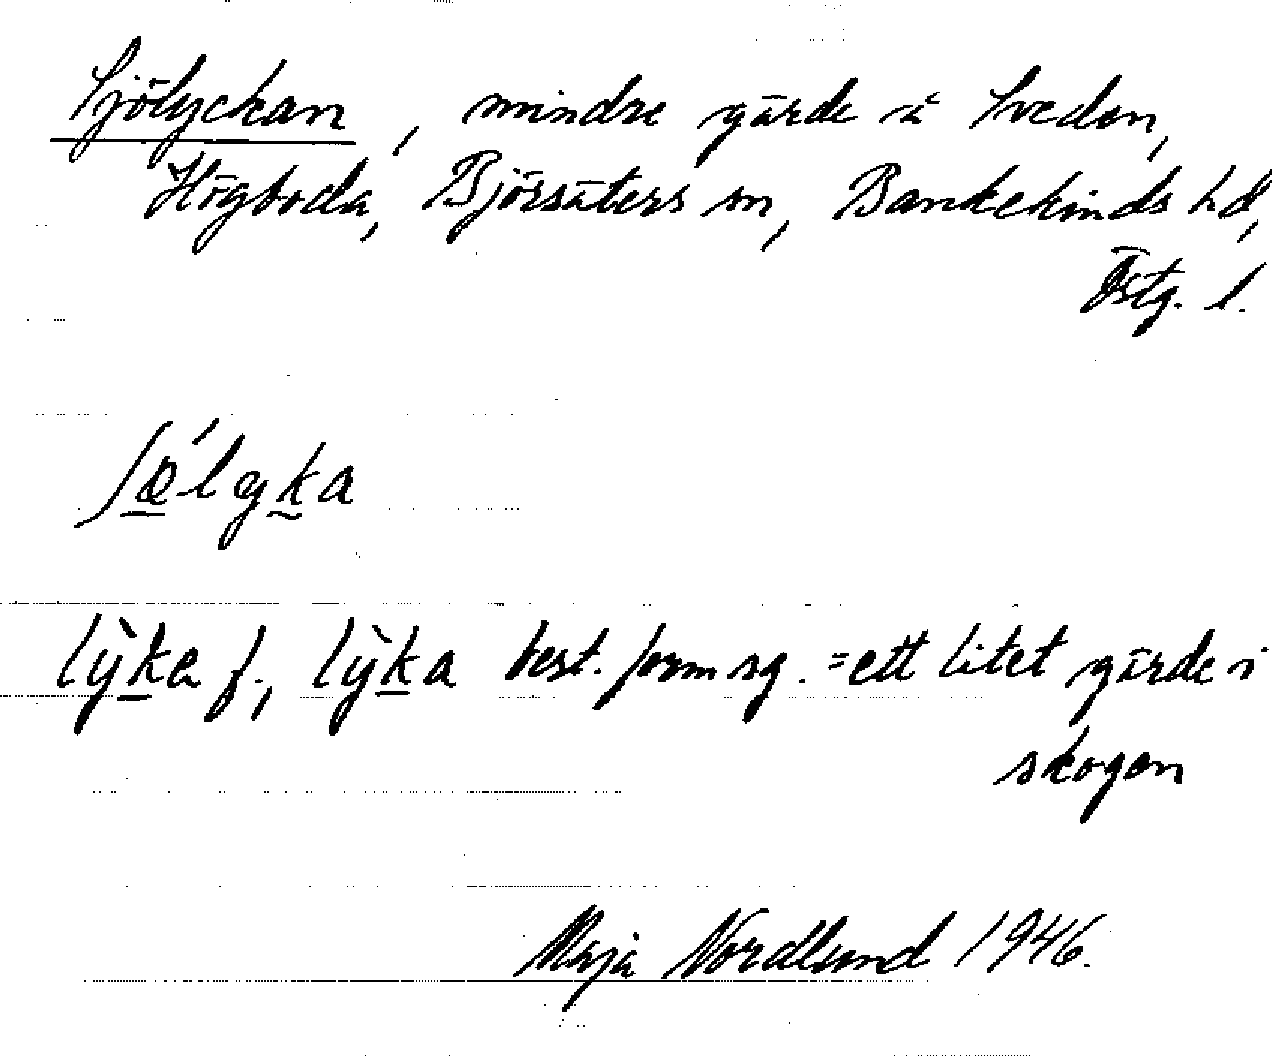 Sjölyckan, mindre gärde å Sveden,
Högboda, Björsäters sn, Bankekinds hd,
Östg. l.
ʃœ́lyka
lỳka f., lỳka best. form sg. = ett litet gärde i
skogen
Maja Nordlund 1946.